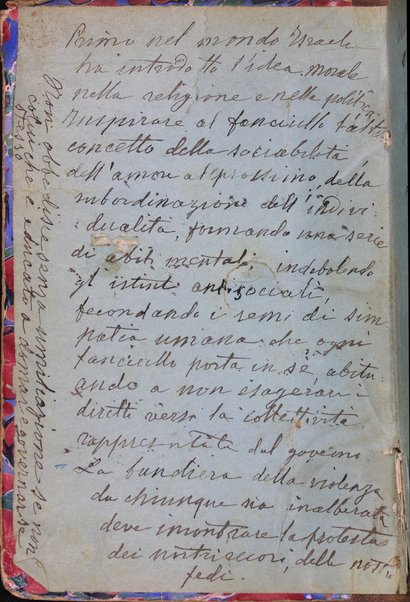 Primo nel mondo Israele
ha introdotto l'idea morale
nella religione e nella politica
Inspirare al fanciullo l'alto
concetto della sociabilità
dell'amore al prossimo, della
subordinazione dell'indivi-
dualità, formando una serie
di abiti mentali, indebolendo
gl'istinti antisociali,
fecondando i semi di sim
patia umana che ogni
fanciullo porta in sè abitu
ando a non esagerare i
diritti verso la collettività
rappresentata dal governo
La bandiera della violenza
da chiunque sia inalberata
deve incontrare la protesta
dei nostri cuori, delle nostre
fedi.
Non obbedisce senza umiliazione se non
colui che è educato a dominare e governare se
stesso